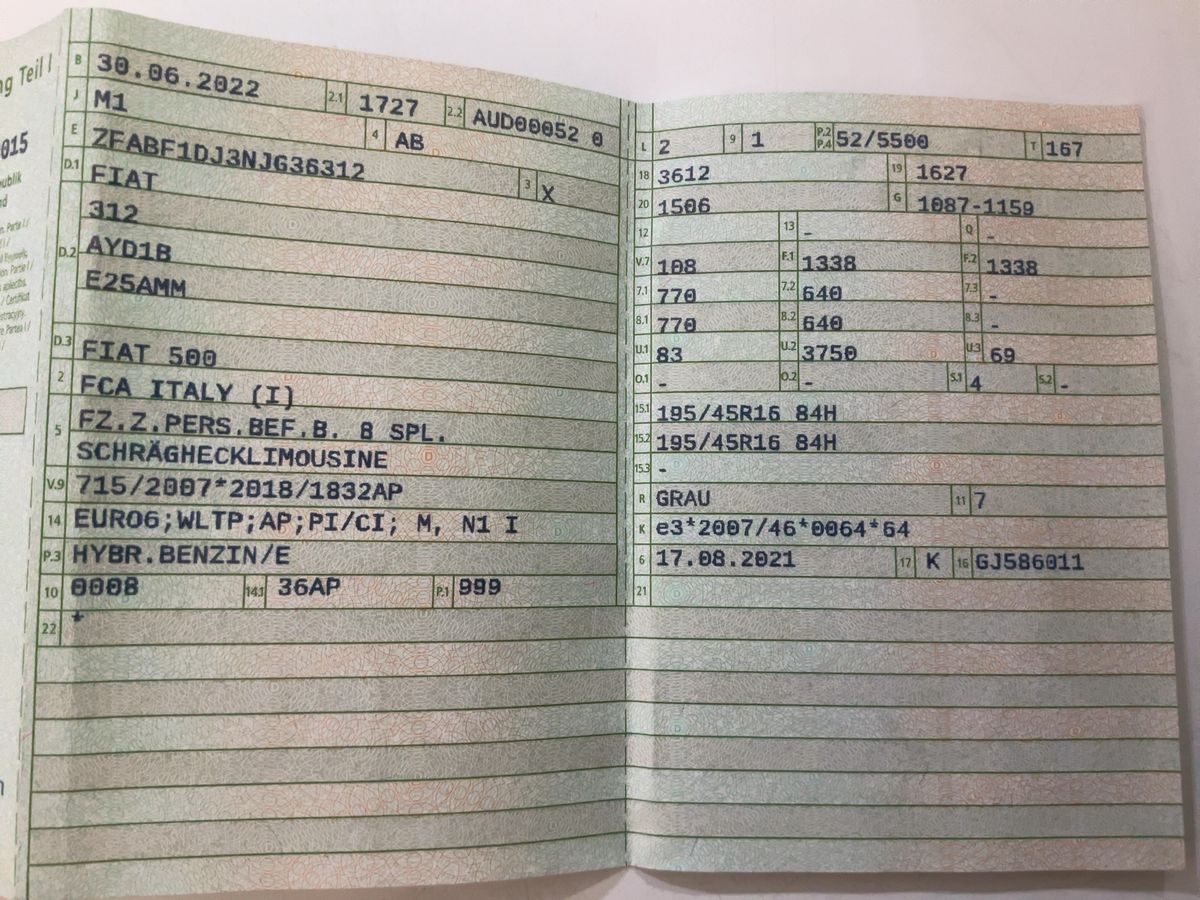 ng Teil I
015
ublik
nd
B 30.06.2022 2.1 1727 2.2 AUD00052 0
J M1 4 AB
E ZFABF1DJ3NJG36312 3 X
D.1 FIAT
D.2 312
AYD1B
E25AMM
D.3 FIAT 500
2 FCA ITALY (I)
5 FZ.Z.PERS.BEF.B. 8 SPL.
SCHRÄGHECKLIMOUSINE
V.9 715/2007*2018/1832AP
14 EURO6;WLTP;AP;PI/CI; M, N1 I
P.3 HYBR.BENZIN/E
10 0008 14.1 36AP P.1 999
22 *
L 2 9 1 P.2 P.4 52/5500 T 167
18 3612 19 1627
20 1506 G 1087-1159
12 13 - Q -
V.7 108 F.1 1338 F.2 1338
7.1 770 7.2 640 7.3 -
8.1 770 8.2 640 8.3 -
U.1 83 U.2 3750 U.3 69
O.1 - O.2 - S.1 4 S.2 -
15.1 195/45R16 84H
15.2 195/45R16 84H
15.3 -
R GRAU 11 7
K e3*2007/46*0064*64
6 17.08.2021 17 K 16 GJ586011
21